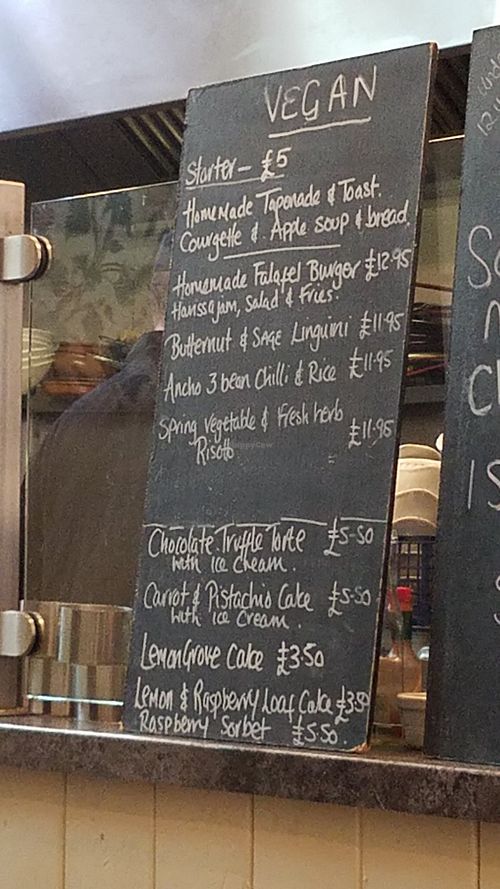 VEGAN
Starter - £5
Homemade Taponade & Toast.
Courgette & Apple soup & bread
Homemade Falafel Burger £12.95
Harissa jam, Salad & Fries.
Butternut & SAGE Linguini £11.95
Ancho 3 bean Chilli & Rice £11.95
Spring vegetable & Fresh herb
Risotto £11.95
Chocolate Truffle Torte £5-50
with ice cream.
Carrot & Pistachio Cake £5-50
with ice Cream.
LemonGrove Cake £3.50
Lemon & Raspberry Loaf Cake £3.50
Raspberry Sorbet £5.50.